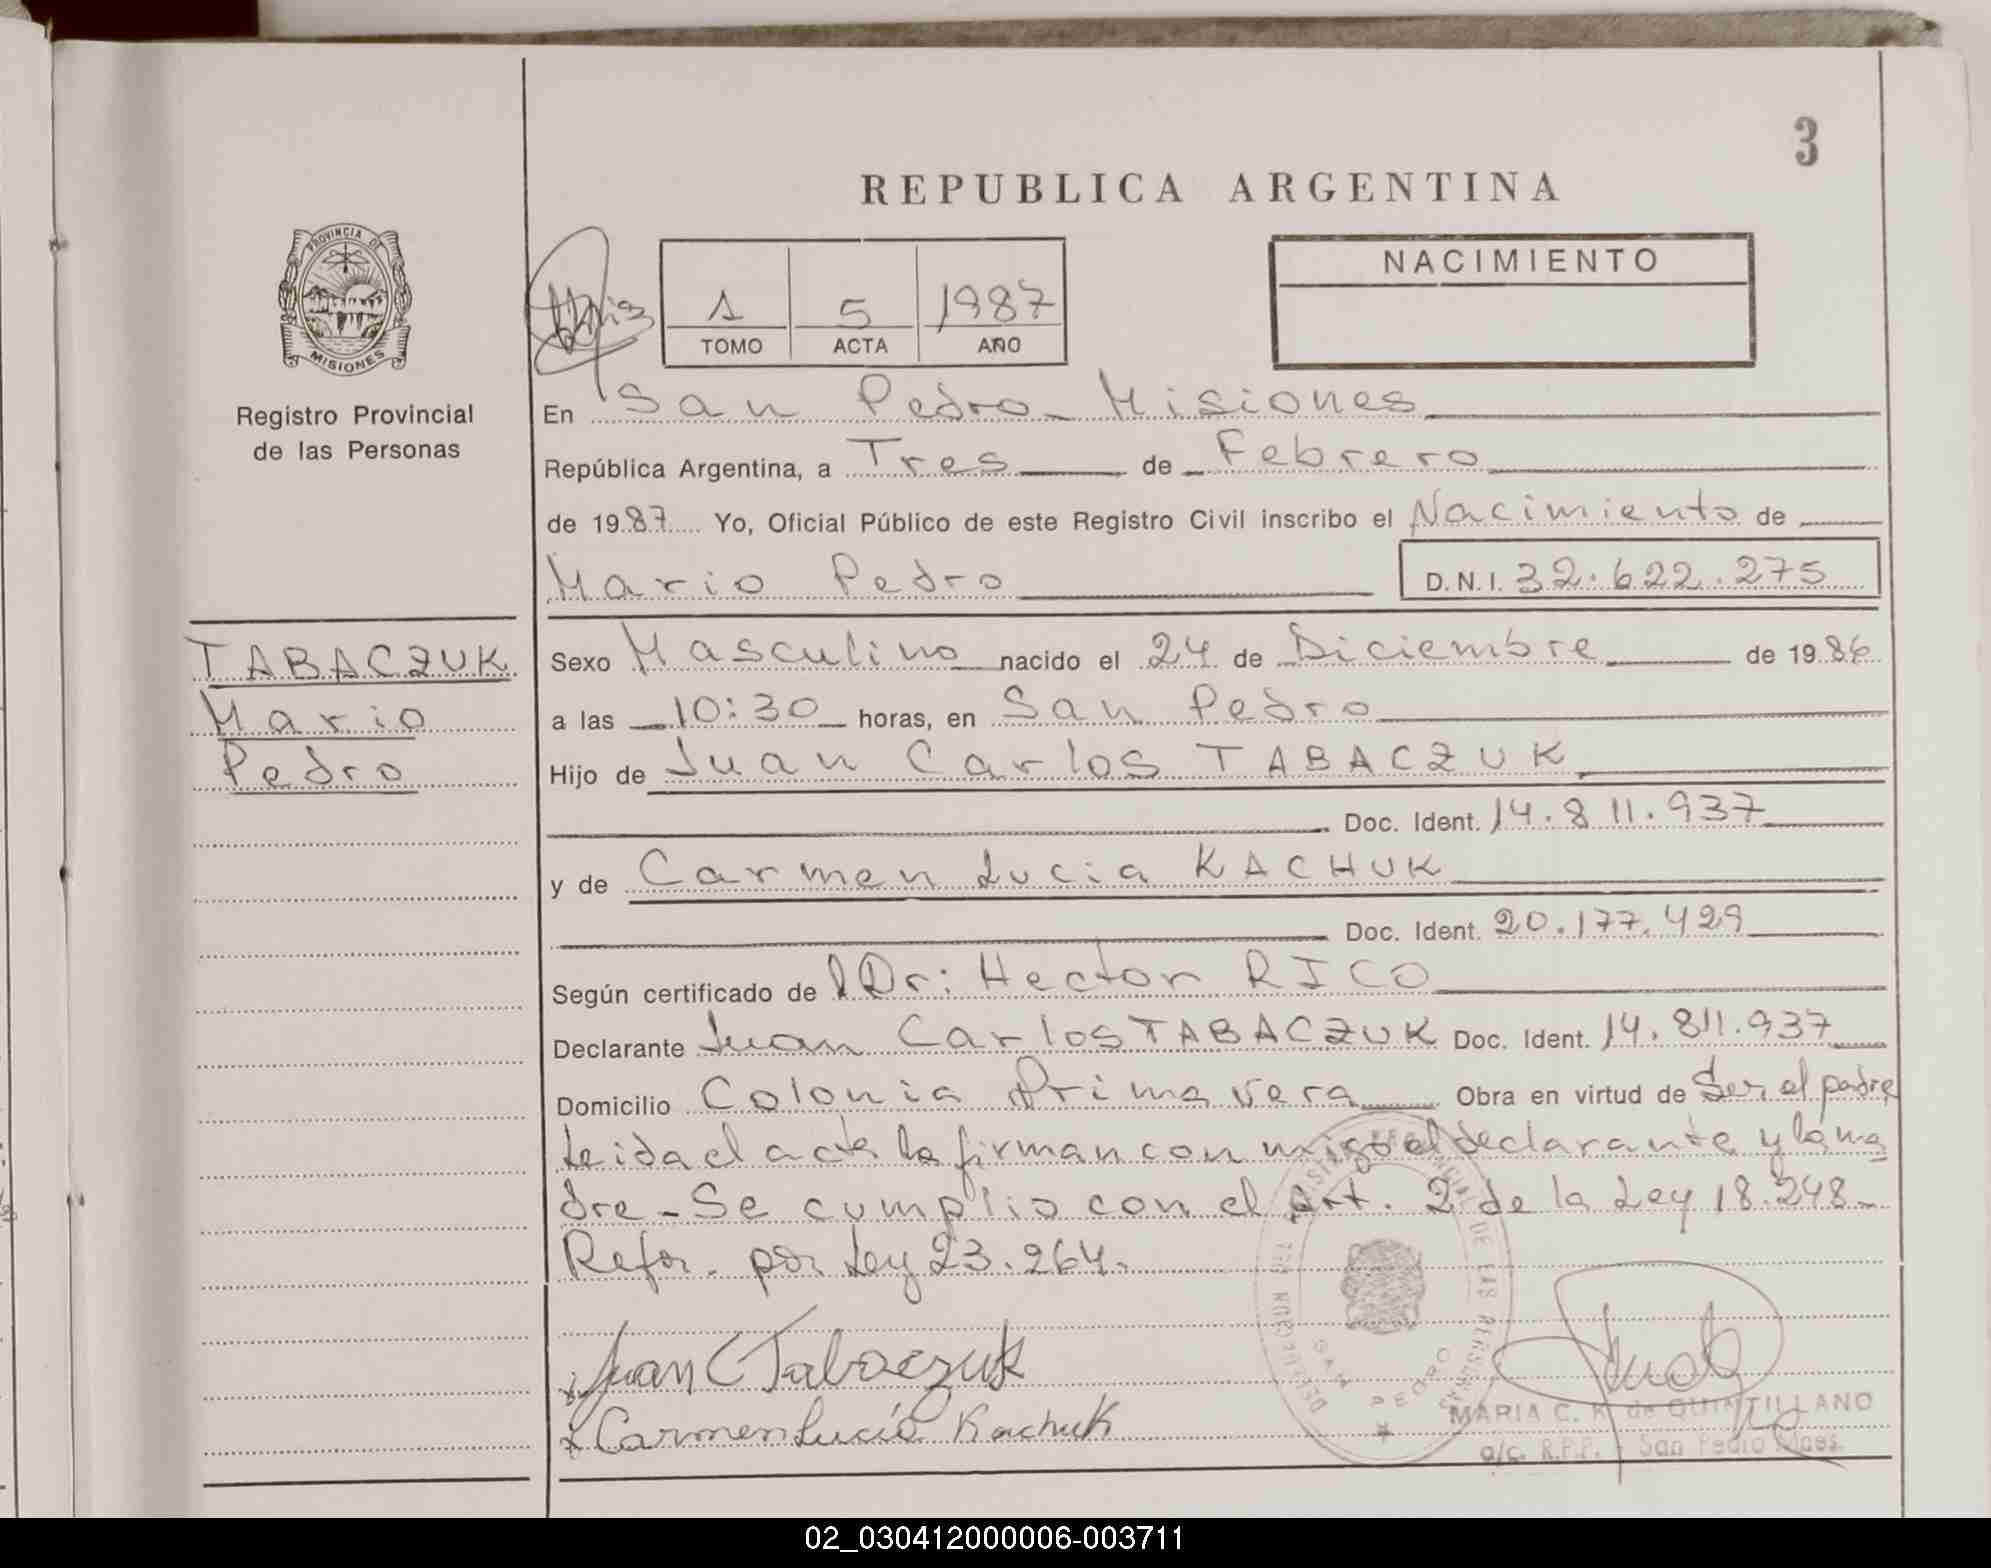 3
REPUBLICA ARGENTINA
PROVINCIA DE
MISIONES
Registro Provincial
de las Personas
1 5 1987
TOMO ACTA AÑO
NACIMIENTO
En San Pedro - Misiones
República Argentina, a Tres de Febrero
de 1987 Yo, Oficial Público de este Registro Civil inscribo el Nacimiento de
Mario Pedro D.N.I. 32.622.275
TABACZUK
Mario
Pedro
Sexo Masculino nacido el 24 de Diciembre de 1986
a las 10:30 horas, en San Pedro
Hijo de Juan Carlos TABACZUK
Doc. Ident. 14.811.937
y de Carmen Lucia KACHUK
Doc. Ident. 20.177.429
Según certificado de Dr: Hector RICO
Declarante Juan Carlos TABACZUK Doc. Ident. 14.811.937
Domicilio Colonia Primavera Obra en virtud de Ser el padre
Leida el acta la firman con migo el declarante y la ma
dre - Se cumplio con el Art. 2 de la Ley 18.248 -
Refor. por Ley 23.264.
Juan C Tabaczuk
Carmen Lucia Kachuk
SAN PEDRO
MARIA C. K. de QUINTILLANO
a/c. R.P.P. - San Pedro Mnes.
02_030412000006-003711